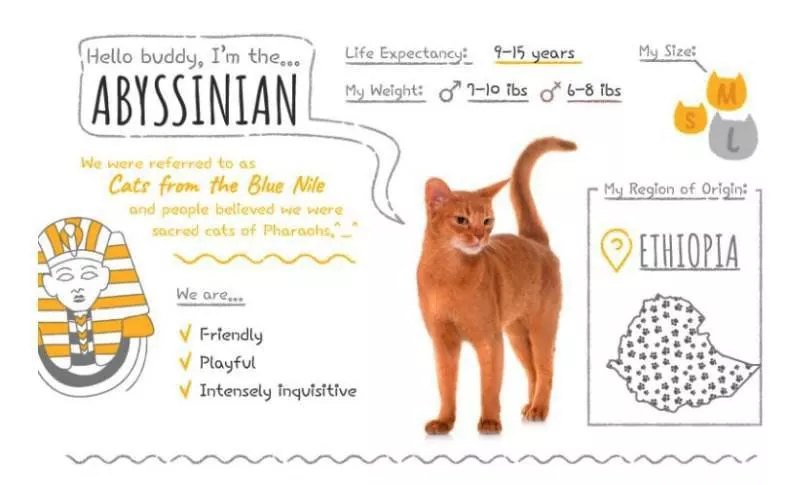 Hello buddy, I'm the...
ABYSSINIAN
Life Expectancy: 9-15 years
My Weight: ♂ 7-10 ibs ♀ 6-8 ibs
My Size:
S M L
We were referred to as
Cats from the Blue Nile
and people believed we were
sacred cats of Pharaohs,^_^
We are...
✓ Friendly
✓ Playful
✓ Intensely inquisitive
My Region of Origin:
ETHIOPIA